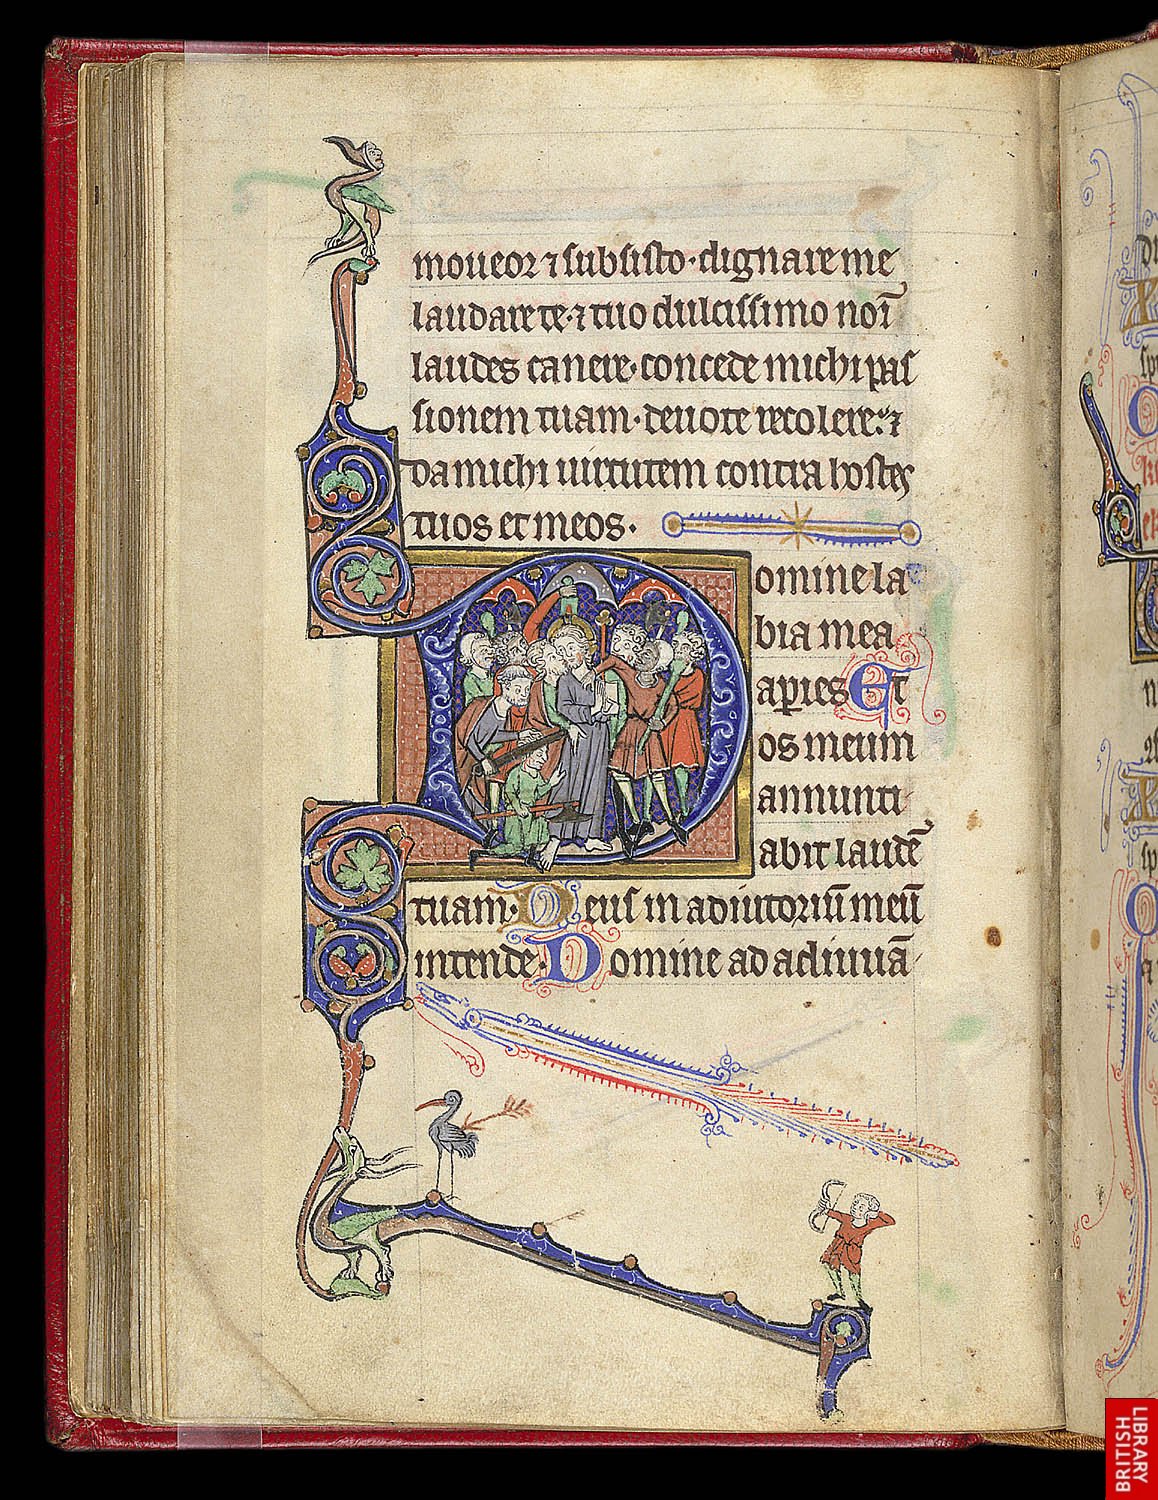 moueor ⁊ subsisto· dignare me
laudare te· ⁊ tuo dulcissimo noī
laudes canere· concede michi pas
sionem tuam· deuote recolere· ⁊
da michi uirtutem contra hostes
tuos et meos·
omine la
bia mea
apies Et
os meum
annunti
abit laudē
tuam· Deus in adiutoriū meū
intende· Domine ad adiuuā
LIBRARY
BRITISH